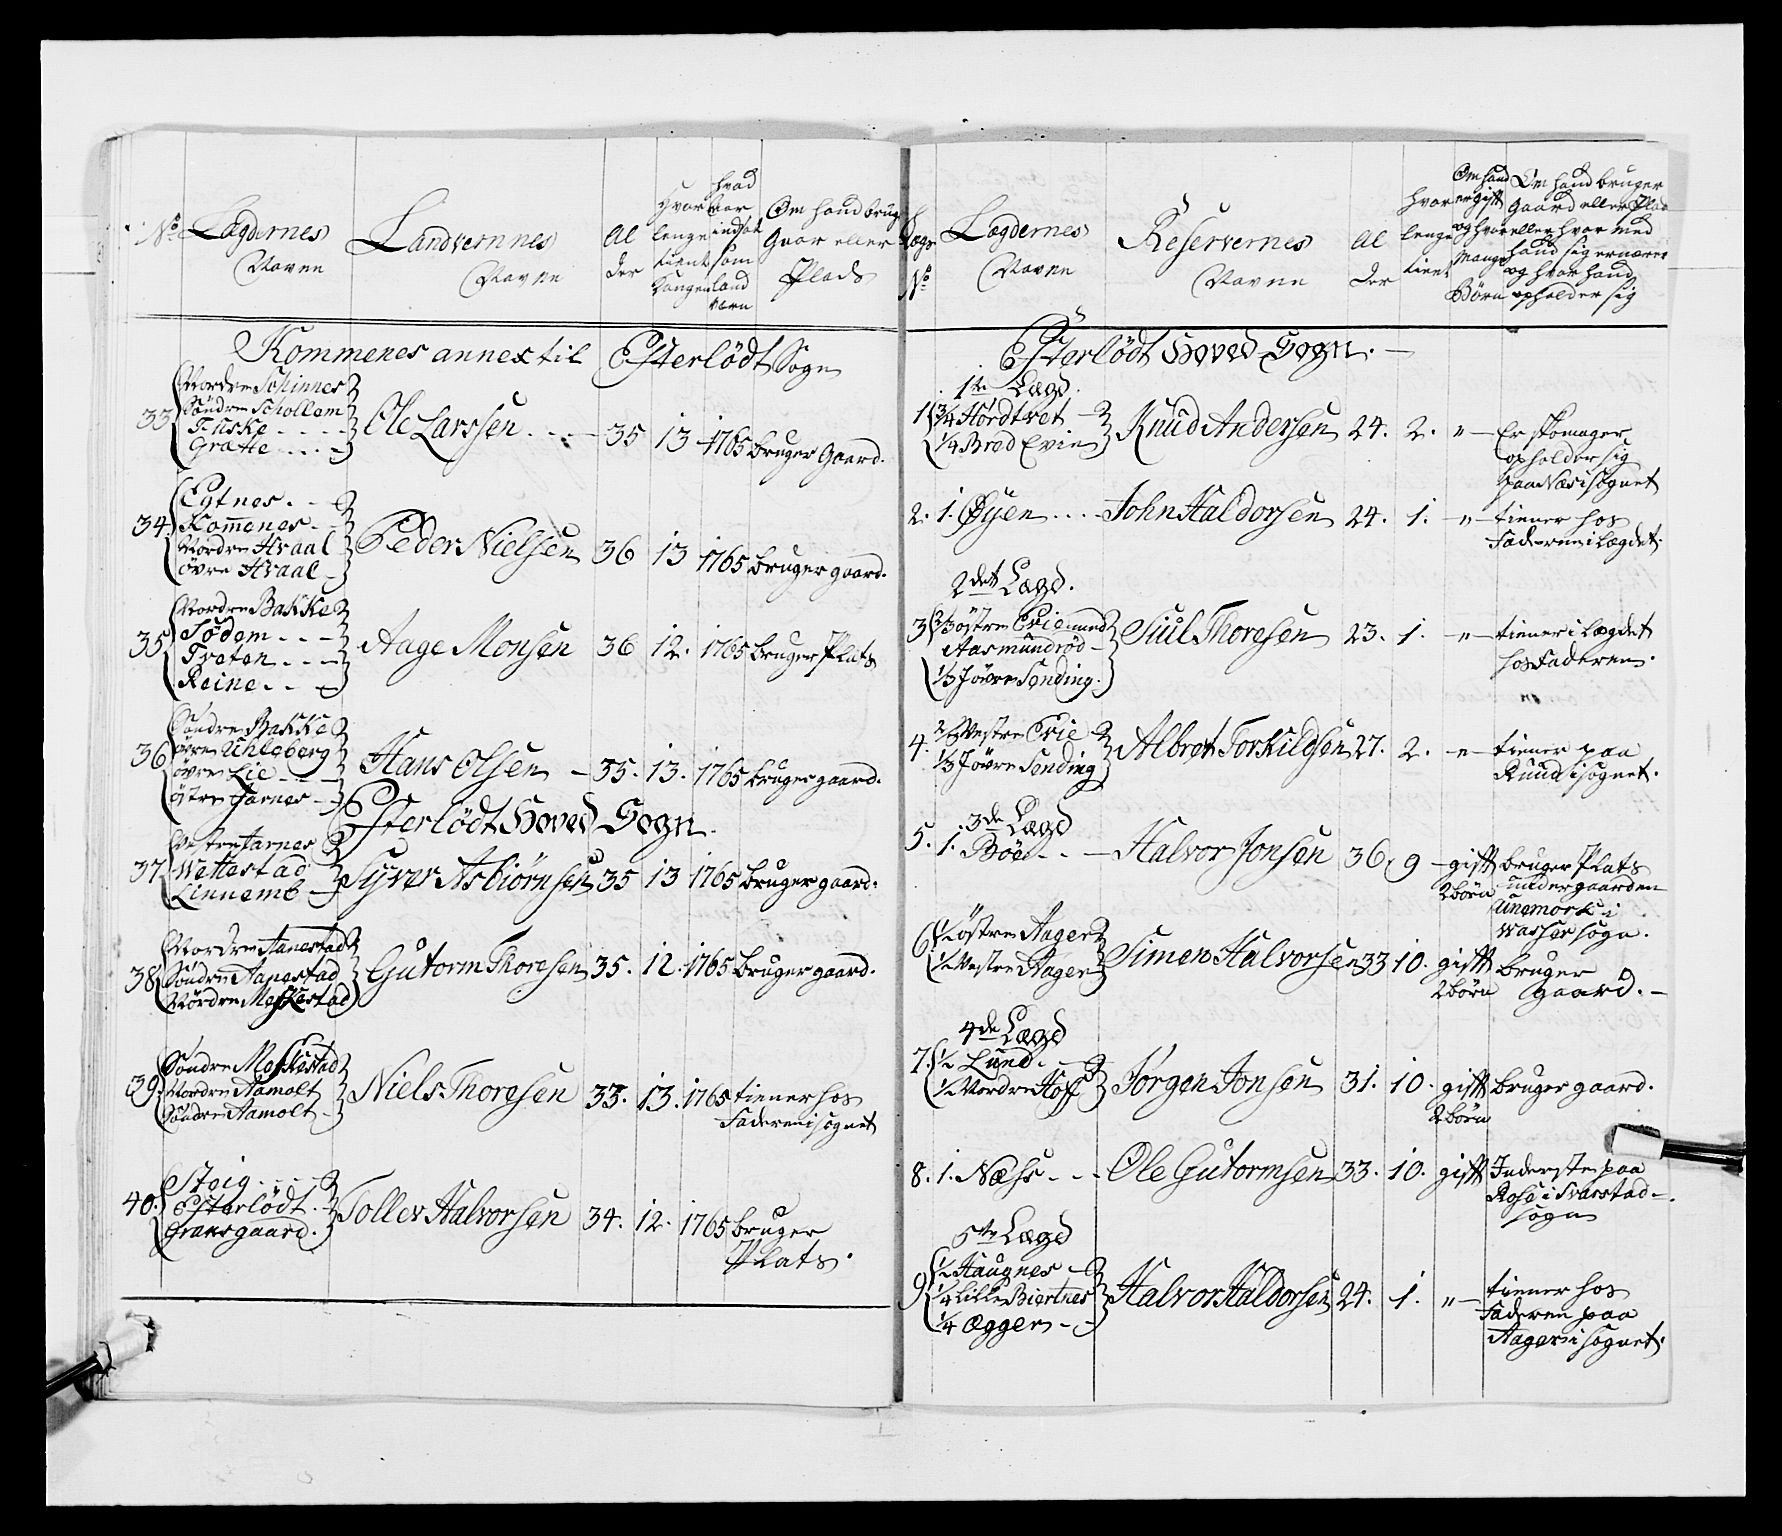 No
Lægdernes
Navne
Landvernnes
Navne
Al
der
Hvor
lenge
tient
hvad
aar
indsat
som
Land
værn
Om hand brug
Gaar eller
Plads
Kommenes annex til Efterlödt Sogn
33
Nordre
Söndre Schollem
Fuske
Gratte
Ole Larssen
35
13
1765
bruger Gaard.
34.
Egtnes
Kommenes
Nordre Hvaal
övre Hvaal
Peder Nielsen
36
13
1765
bruger gaard.
35
Nordre Bakke
Södem
Tveten
Reine
Aage Monsen
36
12.
1765
bruger Plats
36
Söndre Bakke
övre Uhleberg
övre Lie
ÿtre Jarnes
Hans Olsen
35.
13.
1765
bruger gaard.
Efterlödt Hoved Sogn.
37
Vestre Jarnes
Wettestad
Linnemb
Syver Asbiörnsen
35
13
1765
bruger gaard.
38
Nordre Aanestad
Söndre Aanestad
Nördre Meskestad
Gutorm Thoresen
35.
12.
1765
bruger gaard.
39.
Söndre Meskestad
Nordre Aamolt
Söndre Aamolt
Niels Thoresen
33.
13.
1765
tiener hos
Faderen i sognet
40.
Steig
Efterlödt
Gransgaard.
Tollev Halvorsen
34.
12.
1765
bruger
Plats.
Lægs
No
Lægdernes
Navne
Reservernes
Navne
Al
der
hvor
lenge
tient
Om hand
er gift
og hvor
Mange
Börn
Om hand bruger
Gaard eller Plads
eller hvor med
hand sig ernærer
og hvor hand
opholder sig
Efterlödt Hoved Sogn.
1te Lægd.
1
3/4 Hördtvet
1/4 Bred Evie
Knud Andersen
24.
2.
"
Er skomager
opholder sig
paa Næs i sognet
2.
1. Öyen
John Haldorsen
24.
1.
"
tiener hos
Faderen i Lægdet.
2det Lægd.
3
2/3 östre Erie med
Aasmundröd
1/3 Jövre Sending.
Siul Thoresen
23.
1.
"
tiener i Lægdet
hos Faderen.
4.
2/3 Vestre Erie
1/3 Jövre Sending
Albret Torkildsen
27.
2.
"
tiener paa
Ruud i sognet.
3de Lægd
5.
1. Böe
Halvor Jonsen
36.
9
gift
2 börn
bruger Plats
under gaarden
Unemork i
Wasser sogn.
6
1/2 östre Aager
1/2 Vestre Aager
Simen Halvorsen
33
10.
gift
2 börn
bruger
gaard.
4de Lægd
7.
1/2 Lund
1/2 Nordre Hoff
Jörgen Jonsen
31.
10.
gift
2 börn
bruger gaard.
8.
1. Næhs
Ole Gutormsen
33.
10.
gift
Inderste paa
Rose i Svarstad
sogn
5te Lægd
9
1/2 Haugnes
1/4 Lille Biertnes
1/4 Ægger
Halvor Haldorsen
24.
1.
"
tiener hos
Faderen paa
Aager i sognet.